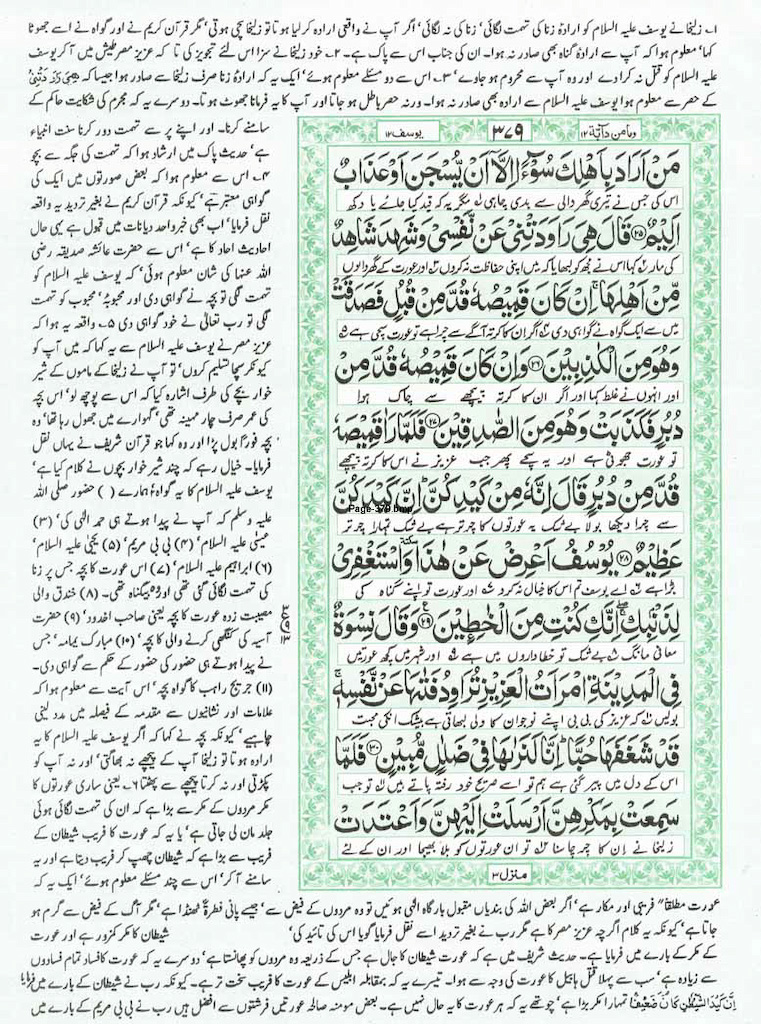 ۱۔ زلیخا نے یوسف علیہ السلام کو ارادۂ زنا کی تہمت لگائی' زنا کی نہ لگائی' اگر آپ نے واقعی ارادہ کر لیا ہوتا تو زلیخا سچی ہوتی' مگر قرآن کریم نے اور گواہ نے اسے جھوٹا
کہا' معلوم ہوا کہ آپ سے ارادۂ گناہ بھی صادر نہ ہوا۔ ان کی جناب اس سے پاک ہے۔ ۲۔ خود زلیخا نے سزا اس لئے تجویز کی تا کہ عزیز مصر طیش میں آ کر یوسف
علیہ السلام کو قتل نہ کرا دے اور وہ آپ سے محروم ہو جاوے' ۳۔ اس سے دو مسئلے معلوم ہوئے' ایک یہ کہ ارادۂ زنا صرف زلیخا سے صادر ہوا جیسا کہ
کے حصر سے معلوم ہوا یوسف علیہ السلام سے ارادہ بھی صادر نہ ہوا۔ ورنہ حصر باطل ہو جاتا اور آپ کا یہ فرمانا جھوٹ ہوتا۔ دوسرے یہ کہ مجرم کی شکایت حاکم کے
ومامن دآبۃ ۱۲ ۳۷۹ یوسف ۱۲
مَنْ اَرَادَ بِاَهْلِكَ سُوْٓءًا اِلَّاۤ اَنْ یُّسْجَنَ اَوْ عَذَابٌ
اس کی جس نے تیری گھر والی سے بدی چاہی ۱؎ مگر یہ کہ قید کیا جائے یا دکھ
اَلِیْمٌ ﴿۲۵﴾ قَالَ هِیَ رَاوَدَتْنِیْ عَنْ نَّفْسِیْ وَ شَهِدَ شَاهِدٌ
کی مار ۲؎ کہا اس نے مجھ کو لبھایا کہ میں اپنی حفاظت نہ کروں ۳؎ اور عورت کے گھر والوں
مِّنْ اَهْلِهَا ۚ اِنْ كَانَ قَمِیْصُهٗ قُدَّ مِنْ قُبُلٍ فَصَدَقَتْ
میں سے ایک گواہ نے گواہی دی ۴؎ اگر ان کا کرتہ آگے سے چرا ہے تو عورت سچی ہے ۵؎
وَ هُوَ مِنَ الْكٰذِبِیْنَ ﴿۲۶﴾ وَ اِنْ كَانَ قَمِیْصُهٗ قُدَّ مِنْ
اور انہوں نے غلط کہا اور اگر ان کا کرتہ پیچھے سے چاک ہوا
دُبُرٍ فَكَذَبَتْ وَ هُوَ مِنَ الصّٰدِقِیْنَ ﴿۲۷﴾ فَلَمَّا رَاٰ قَمِیْصَهٗ
تو عورت جھوٹی ہے اور یہ سچے پھر جب عزیز نے اس کا کرتہ پیچھے
قُدَّ مِنْ دُبُرٍ قَالَ اِنَّهٗ مِنْ كَیْدِكُنَّ ؕ اِنَّ كَیْدَكُنَّ
Page-379.bmp
سے چرا دیکھا بولا بے شک یہ عورتوں کا چرتر ہے بے شک تمہارا چرتر
عَظِیْمٌ ﴿۲۸﴾ یُوْسُفُ اَعْرِضْ عَنْ هٰذَا ٚ وَ اسْتَغْفِرِیْ
بڑا ہے اے یوسف تم اس کا خیال نہ کرو اور عورت تو اپنے گناہ کی
لِذَنْۢبِكِ ۖۚ اِنَّكِ كُنْتِ مِنَ الْخٰطِئِیْنَ ﴿۲۹﴾ وَ قَالَ نِسْوَةٌ
معافی مانگ بے شک تو خطا داروں میں ہے اور شہر میں کچھ عورتیں
فِی الْمَدِیْنَةِ امْرَاَتُ الْعَزِیْزِ تُرَاوِدُ فَتٰىهَا عَنْ نَّفْسِهٖ ۚ
بولیں کہ عزیز کی بی بی اپنے نوجوان کا دل لبھاتی ہے بیشک انکی محبت
قَدْ شَغَفَهَا حُبًّا ؕ اِنَّا لَنَرٰىهَا فِیْ ضَلٰلٍ مُّبِیْنٍ ﴿۳۰﴾ فَلَمَّا
اس کے دل میں پیر گئی ہے ہم تو اسے صریح خود رفتہ پاتے ہیں تو جب
سَمِعَتْ بِمَكْرِهِنَّ اَرْسَلَتْ اِلَیْهِنَّ وَ اَعْتَدَتْ
زلیخا نے ان کا چرچا سنا تو ان عورتوں کو بلا بھیجا اور ان کے لئے
منزل ۳
سامنے کرنا۔ اور اپنے پر سے تہمت دور کرنا سنت انبیاء
ہے' حدیث پاک میں ارشاد ہوا کہ تہمت کی جگہ سے بچو
۴۔ اس سے معلوم ہوا کہ بعض صورتوں میں ایک کی
گواہی معتبر ہے' کیونکہ قرآن کریم نے بغیر تردید یہ واقعہ
نقل فرمایا' اب بھی خبر واحد دیانات میں قبول ہے یہی حال
احادیث احاد کا ہے' اس سے حضرت عائشہ صدیقہ رضی
اللہ عنہا کی شان معلوم ہوئی' کہ یوسف علیہ السلام کو
تہمت لگی تو بچہ نے گواہی دی اور محبوبۂ محبوب کو تہمت
لگی تو رب تعالیٰ نے خود گواہی دی ۵۔ واقعہ یہ ہوا کہ
عزیز مصر نے یوسف علیہ السلام سے یہ کہا کہ میں آپ کو
کیونکر سچا تسلیم کروں' تو آپ نے زلیخا کے ماموں کے شیر
خوار بچے کی طرف اشارہ کیا کہ اس سے پوچھ لو' اس بچہ
کی عمر صرف چار مہینہ تھی' گہوارے میں جھول رہا تھا' وہ
بچہ فوراً بول پڑا اور وہ کہا جو قرآن شریف نے یہاں نقل
فرمایا۔ خیال رہے کہ چند شیر خوار بچوں نے کلام کیا ہے'
یوسف علیہ السلام کا یہ گواہ' ہمارے ( ) حضور صلی اللہ
علیہ وسلم کہ آپ نے پیدا ہوتے ہی حمد الٰہی کی' (۳)
عیسیٰ علیہ السلام' (۴) بی بی مریم' (۵) یحییٰ علیہ السلام'
(۶) ابراہیم علیہ السلام' (۷) اس عورت کا بچہ جس پر زنا
کی تہمت لگائی گئی تھی اور وہ بیگناہ تھی۔ (۸) خندق والی
مصیبت زدہ عورت کا بچہ یعنی صاحب اخدود' (۹) حضرت
آسیہ کی کنگھی کرنے والی کا بچہ' (۱۰) مبارک یمامہ' جس
نے پیدا ہوتے ہی حضور کی حضور کے حکم سے گواہی دی۔
(۱۱) جریج راہب کا گواہ بچہ' اس آیت سے معلوم ہوا کہ
علامات اور نشانیوں سے مقدمہ کے فیصلہ میں مدد لینی
چاہیے' کیونکہ بچہ نے کہا کہ اگر یوسف علیہ السلام کا یہ
ارادہ ہوتا تو زلیخا آپ کے پیچھے نہ بھاگتی' اور نہ آپ کو
پکڑتی اور نہ کرتا پیچھے سے پھٹتا ۶۔ یعنی ساری عورتوں کا
مکر مردوں کے مکر سے بڑا ہے کہ ان کی تہمت لگائی ہوئی
جلد مان لی جاتی ہے' یا یہ کہ عورت کا فریب شیطان کے
فریب سے بڑا ہے کہ شیطان چھپ کر فریب دیتا ہے اور یہ
سامنے آ کر' اس سے چند مسئلے معلوم ہوئے' ایک یہ کہ
عورت مطلقاً فریبی اور مکار ہے' اگر بعض اللہ کی بندیاں مقبول بارگاہ الٰہی ہوئیں تو وہ مردوں کے فیض سے' جیسے پانی فطرۃً ٹھنڈا ہے' مگر آگ کے فیض سے گرم ہو
جاتا ہے' کیونکہ یہ کلام اگرچہ عزیز مصر کا ہے مگر رب نے بغیر تردید اسے نقل فرمایا گویا اس کی تائید کی' شیطان کا مکر کمزور ہے اور عورت
کے مکر کے بارے میں فرمایا۔ حدیث شریف میں ہے کہ عورت شیطان کا جال ہے جس کے ذریعہ وہ مردوں کو پھانستا ہے' دوسرے یہ کہ عورت کا فساد تمام فسادوں
سے زیادہ ہے' سب سے پہلا قتل ہابیل کا عورت کی وجہ سے ہوا۔ تیسرے یہ کہ بمقابلہ ابلیس کے عورت کا فریب سخت تر ہے۔ کیونکہ رب نے شیطان کے بارے میں فرمایا
اِنَّ كَیْدَ الشَّیْطٰنِ كَانَ ضَعِیْفًا تمہارا مکر بڑا ہے' چوتھے یہ کہ ہر عورت کا یہ حال نہیں ہے۔ بعض مومنہ صالحہ عورتیں فرشتوں سے افضل ہیں رب نے بی بی مریم کے بارے میں